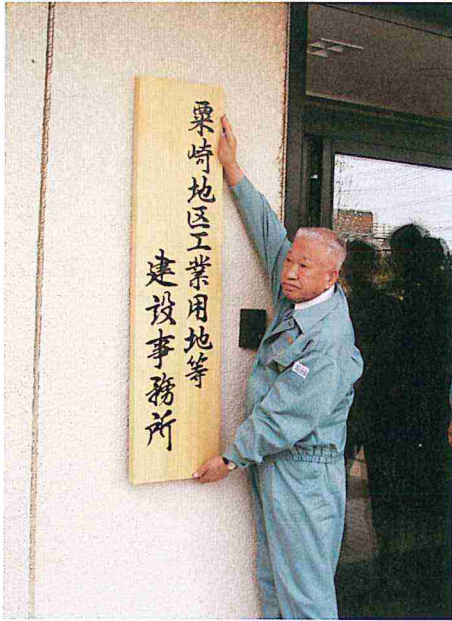 粟崎地区工業用地等
建設事務所